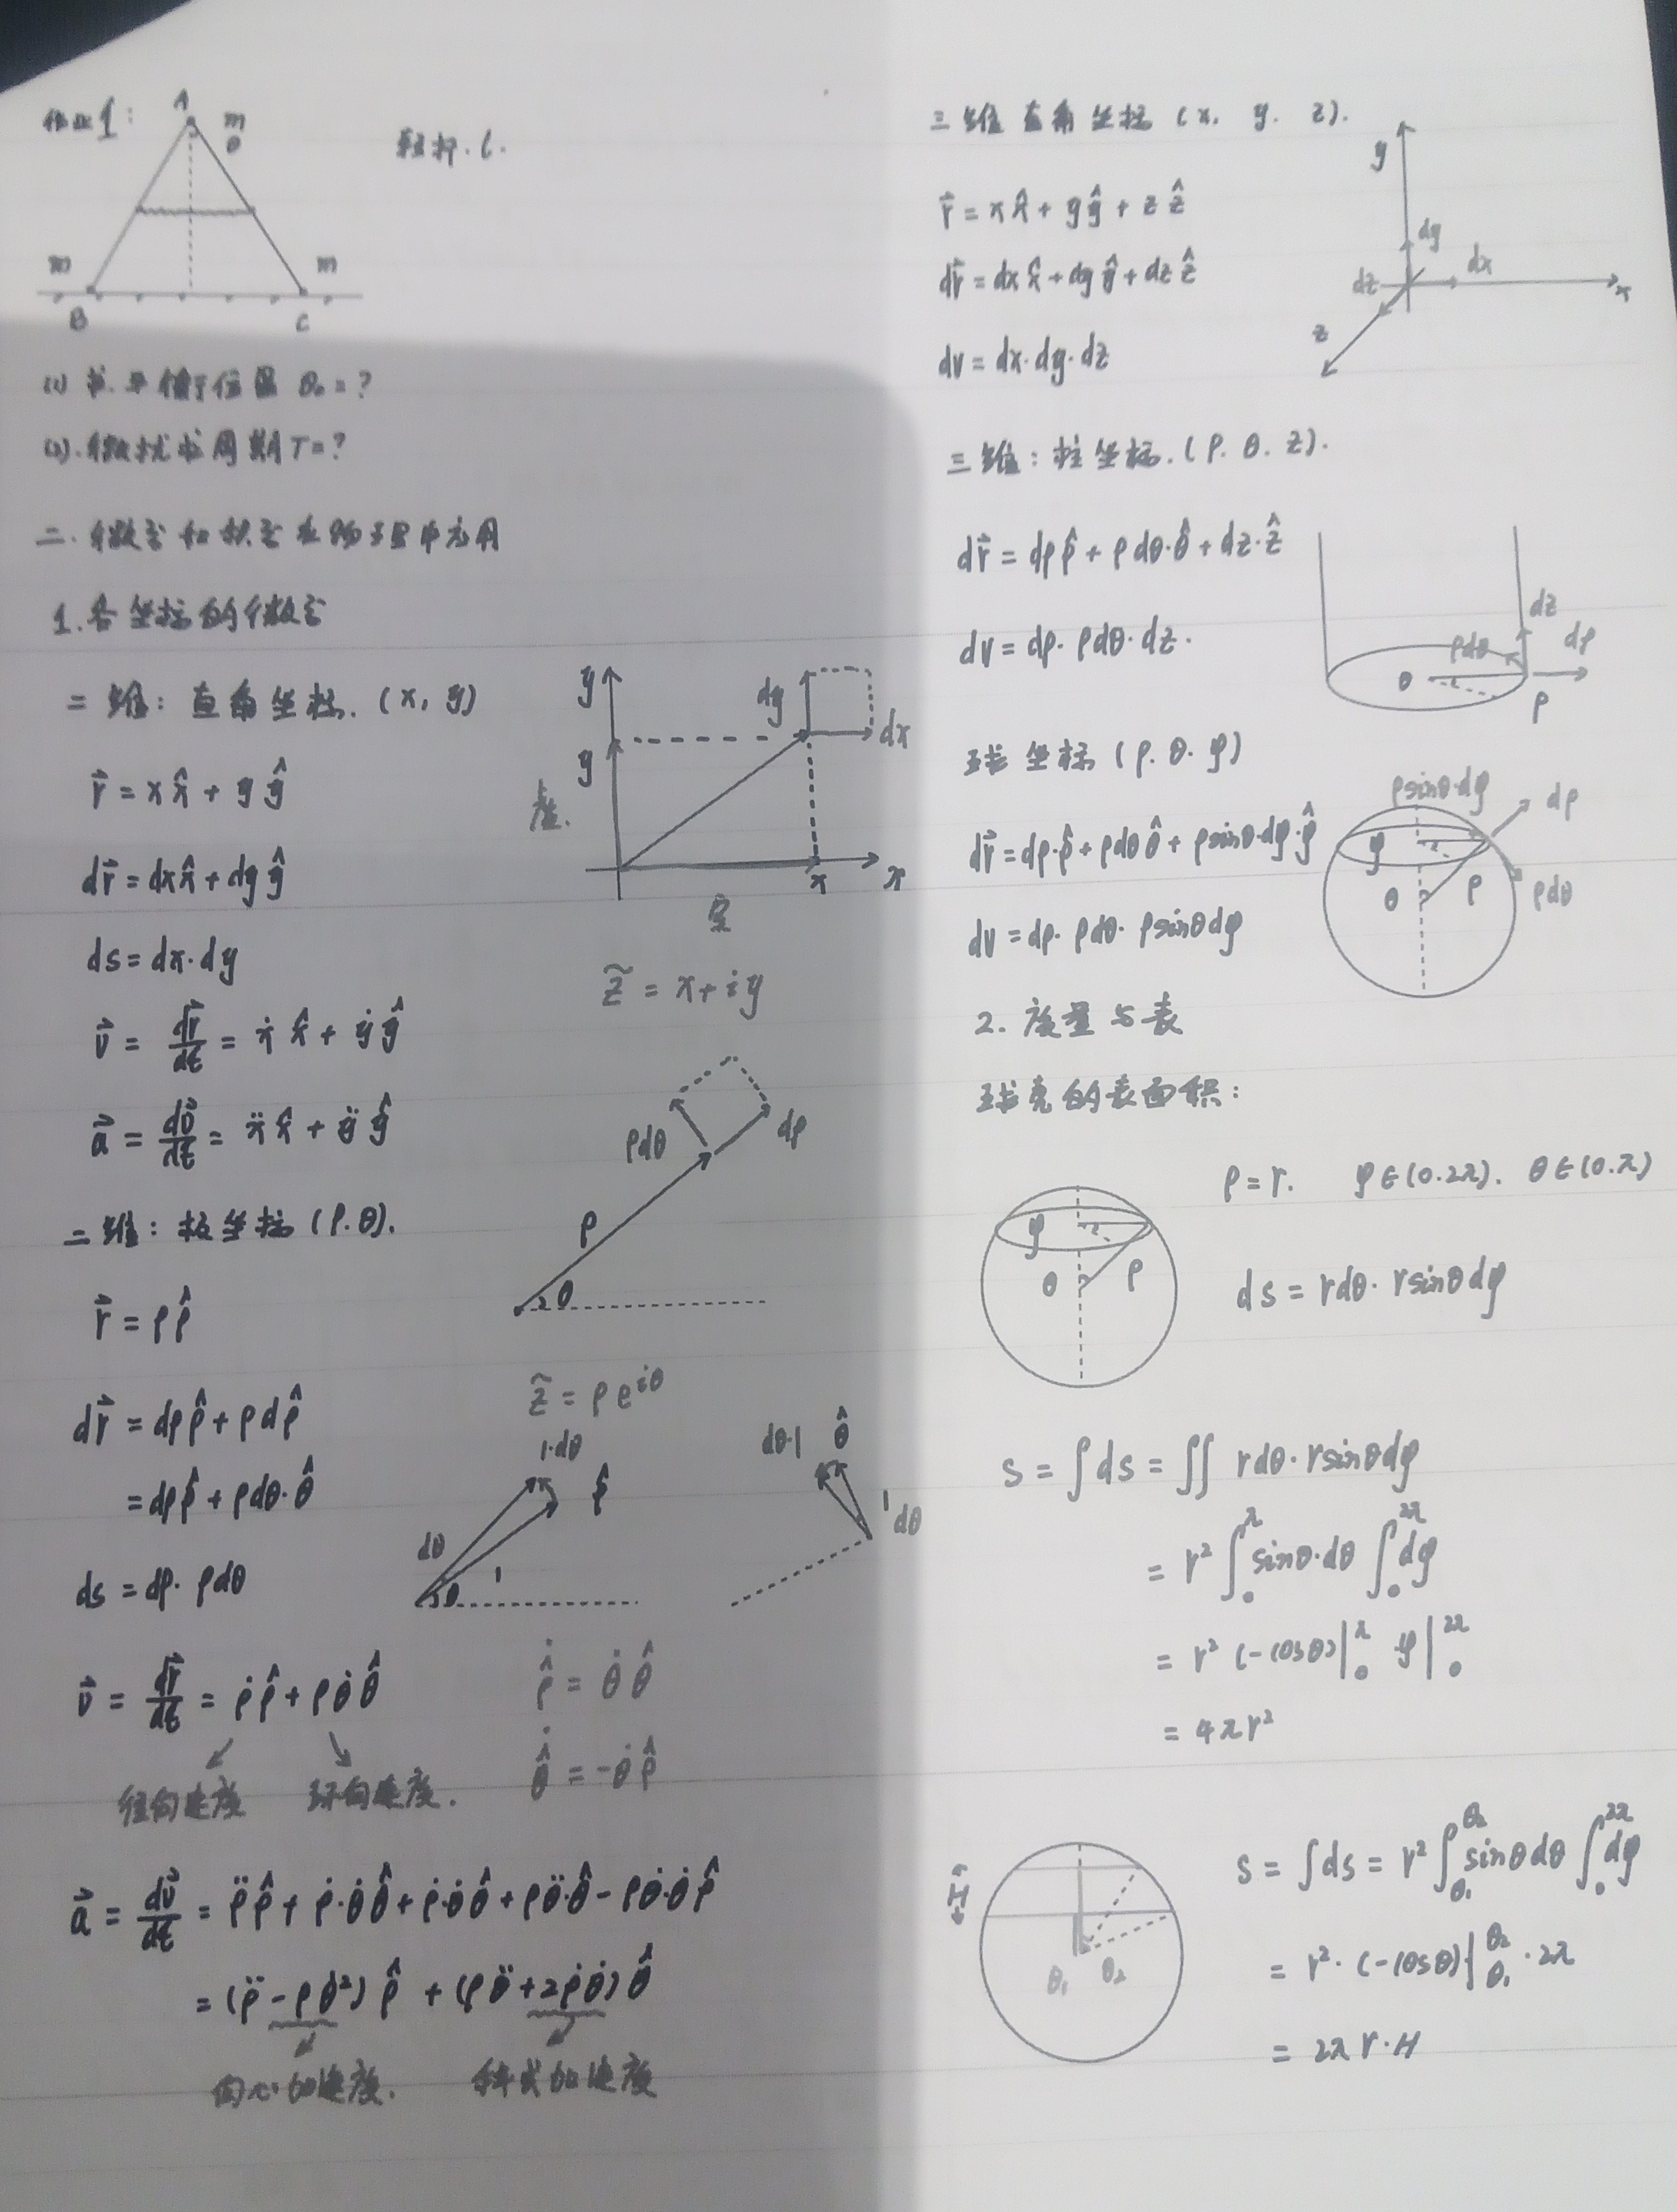 作业1:
A
m
θ
m
m
B
C
轻杆. l.
(1) 求.平衡位置 θ₀ = ?
(2).微扰求周期T=?
二. 微分和积分在物理中应用
1. 各坐标的微分
二维: 直角坐标. (x, y)
r⃗ = x x̂ + y ŷ
dr⃗ = dx x̂ + dy ŷ
ds = dx·dy
v⃗ = dr⃗/dt = ẋ x̂ + ẏ ŷ
a⃗ = dv⃗/dt = ẍ x̂ + ÿ ŷ
y
y
dy
dx
虚.
x
x
实
z̃ = x+iy
二维: 极坐标 (ρ.θ).
r⃗ = ρρ̂
dr⃗ = dρρ̂ + ρdρ̂
= dρρ̂ + ρdθ·θ̂
ds = dρ· ρdθ
ρdθ
dρ
ρ
θ
z̃ = ρe^{iθ}
1·dθ
ρ̂
dθ
θ
1
dθ·1
θ̂
1
dθ
v⃗ = dr⃗/dt = ρ̇ρ̂ + ρθ̇θ̂
径向速度 环向速度.
ρ̂̇ = θ̇θ̂
θ̂̇ = -θ̇ρ̂
a⃗ = dv⃗/dt = ρ̈ρ̂ + ρ̇·θ̇θ̂ + ρ̇·θ̇θ̂ + ρθ̈·θ̂ - ρθ̇·θ̇ρ̂
= (ρ̈ - ρθ̇²) ρ̂ + (ρθ̈ + 2ρ̇θ̇) θ̂
向心加速度. 科式加速度
三维 直角坐标 (x, y. z).
r⃗ = x x̂ + y ŷ + z ẑ
dr⃗ = dx x̂ + dy ŷ + dz ẑ
dv = dx·dy·dz
y
dy
dx
dz
x
z
三维: 柱坐标. (ρ. θ. z).
dr⃗ = dρρ̂ + ρdθ·θ̂ + dz·ẑ
dv = dρ· ρdθ· dz.
dz
dρ
ρdθ
θ
ρ
球坐标 (ρ. θ. φ)
dr⃗ = dρ·ρ̂ + ρdθ θ̂ + ρsinθ·dφ·φ̂
dv = dρ· ρdθ· ρsinθdφ
ρsinθ·dφ
dρ
φ
θ
ρ
ρdθ
2. 度量与表
球壳的表面积:
φ
θ
ρ
ρ = r. φ∈(0.2π). θ∈(0.π)
ds = rdθ· rsinθdφ
s = ∫ds = ∬ rdθ· rsinθdφ
= r² ∫₀^π sinθ·dθ ∫₀^{2π} dφ
= r² (-cosθ)|₀^π φ|₀^{2π}
= 4πr²
H
θ₁
θ₂
s = ∫ds = r² ∫_{θ₁}^{θ₂} sinθdθ ∫₀^{2π} dφ
= r²· (-cosθ)|_{θ₁}^{θ₂} ·2π
= 2πr·H